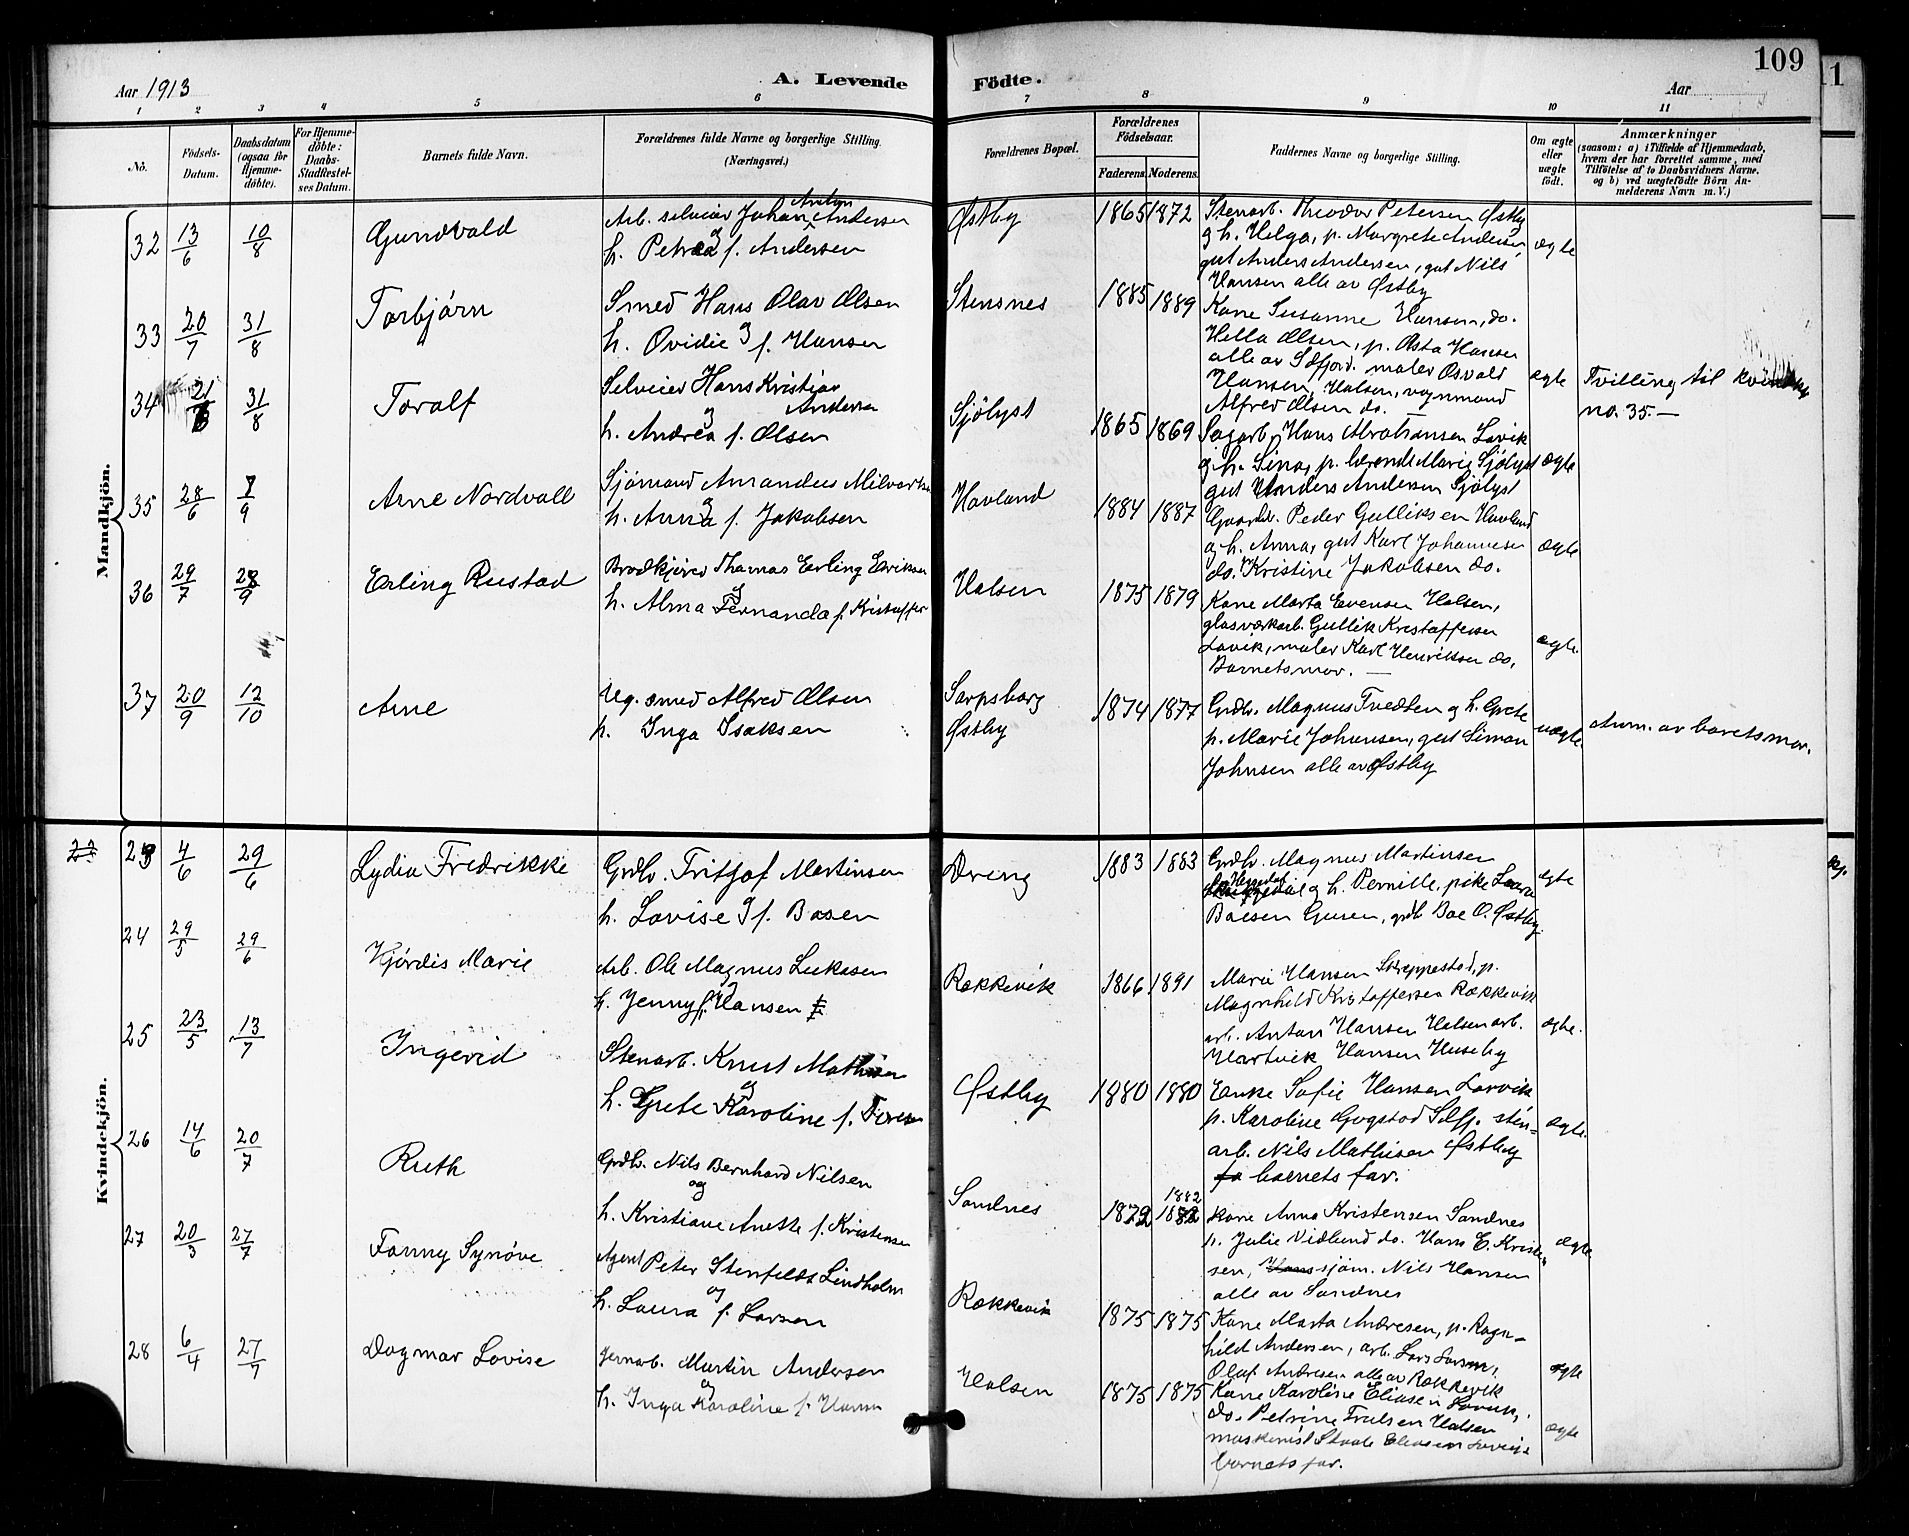 109
Aar 1913
A. Levende Födte.
Aar
1 2 3 4 5 6 7 8 9 10 11
No.
Födsels-Datum.
Daabsdatum (ogsaa for Hjemme-döbte).
For Hjemme-döbte: Daabs-Stadfæstel-ses Datum.
Barnets fulde Navn.
Forældrenes fulde Navne og borgerlige Stilling. (Næringsvei.)
Forældrenes Bopæl.
Forældrenes Födselsaar.
Faderens. Moderens.
Faddernes Navne og borgerlige Stilling.
Om ægte eller uægte födt.
Anmærkninger
(saasom: a) i Tilfælde af Hjemmedaab, hvem der har forrettet samme, med Tilföielse af to Daabsvidners Navne, og b) ved uægtefödte Börn An-melderens Navn m. V.)
Mandkjön.
32 13/6 10/8 Gundvald
Arb. selveier Johan Anton Andersen
og
h. Petrea f. Andersen
Østby 1865 1872
Stenarb. Theodor Petersen Østby
og h. Helga, p. Margrete Andersen
gut Anders Andersen, gut Nils
Hansen alle av Østby
ægte
33 20/7 31/8 Torbjörn
Smed Hans Olav Olsen
og
h. Ovidie f. Hansen
Stensnes 1885 1889
Kone Susanne Hansen, do.
Hella Olsen, p. Asta Hansen
alle av Sdfjord. maler Osvald
Hansen, Halsen, vognmand
Alfred Olsen do.
ægte
34 21/6 31/8 Toralf
Selveier Hans Kristian
Andersen
og
h. Andrea f. Olsen
Sjölyst 1865 1869
Sagarb. Hans Abrahamsen Lavik
og h. Lina, p. Marie Sjölyst
gut Anders Andersen Sjölyst
ægte
Tvilling til
no. 35.—
35 28/6 7/9 Arne Nordvall
Sjömand Amandus
og
h. Anna f. Jakobsen
Havland 1884 1887
Gaardbr. Peder Gulliksen Havland
og h. Anna, gut Karl Johannesen
do. Kristine Jakobsen do.
ægte
36 29/7 28/9 Erling Rustad
Brödkjörer Thomas Erling Eriksen
og
h. Alma Fernanda f. Kristoffer
Halsen 1875 1879
Kone Marta Evensen Halsen,
glasværkarb. Gullik Kristoffersen
Lavik, maler Karl Henriksen do,
Barnets mor. —
ægte.
37 20/9 12/10 Arne
Ug. smed Alfred Olsen
p. Inga Isaksen
Sarpsborg
Østby
1874 1877
Grdbr. Magnus Tvedten og h. Grete
p. Marie Johansen, gut Simon
Johnsen alle av Østby
uægte.
Anm. av barnets mor.
Kvindekjön.
22 23 4/6 29/6 Lydia Fredrikke
Grdbr. Fritjof Martinsen
og
h. Lovise f. Basen
Dring 1883 1883
Grdbr. Magnus Martinsen
og h. Pernille, pike Laura
Boesen Guren, grdb Boe O. Østby.
ægte
24 29/5 29/6 Hjördis Marie
Arb. Ole Magnus Lukasen
og
h. Jenny f. Hansen
Rækkevik 1866 1891
Marie Hansen Skreppestad, p.
Magnhild Kristoffersen Rækkevik
arb. Anton Hansen Halsen arb.
Hartvik Hansen Huseby
ægte.
25 23/5 13/7 Ingerid
Stenarb. Knut Mathisen
og
h. Grete Karoline f.
Østby 1880 1880
Enke Sofie Hansen Larvik
p. Karoline Gogstad stén=
arb. Nils Mathisen Østby
barnets far.
ægte.
26 14/6 20/7 Ruth
Grdbr. Nils Bernhard Nilsen
og
h. Kristiane Anette f. Kristensen
Sandnes 1872 1882
Kone Anna Kristensen Sandnes
p. Julie Vidlund do. Hans E. Kristen=
sen, sjöm. Nils Hansen
alle av Sandnes
ægte
27 20/3 27/7 Fanny Synöve
Agent Peter Stenfeldt Lindholm
og
h. Laura f. Larsen
Rækkevik 1875 1875
Kone Marta Andresen, p. Ragn=
hild Andersen, arb. Lars Larsen,
Olaf Andresen alle av Rækkevik
ægte
28 6/4 27/7 Dagmar Lovise
Jernarb. Martin Andersen
og
h. Inga Karoline f. Hansen
Halsen 1875 1875
Kone Karoline Eliasen Lavik,
do. Petrine Trulsen Halsen
maskinist Eliasen
barnets far.
ægte